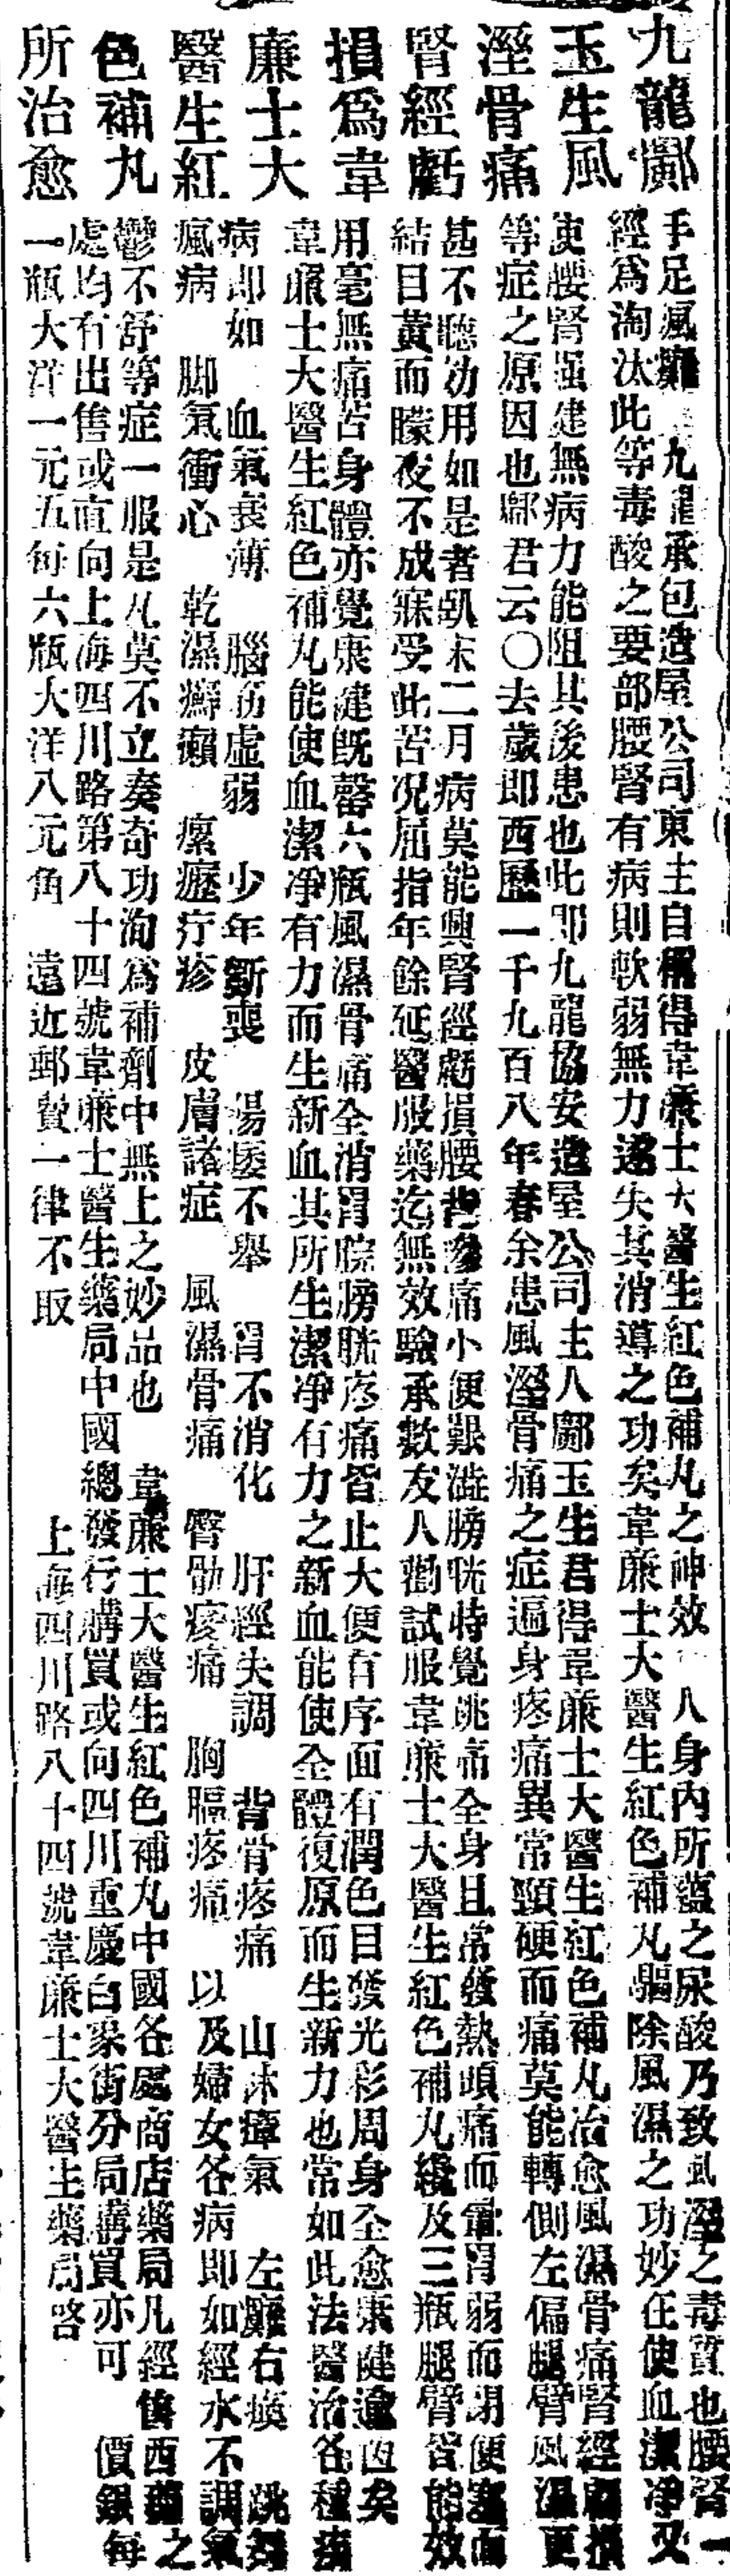 九龍鄺
玉生風
溼骨痛
腎經虧
損爲韋
廉士大
醫生紅
色補丸
所治愈
手足瘋癱 九龍承包造屋公司東主自稱得韋廉士大醫生紅色補丸之神效 人身內所蘊之尿酸乃致風溼之毒質也腰腎一
經爲淘汰此等毒酸之要部腰腎有病則軟弱無力遂失其消導之功矣韋廉士大醫生紅色補丸驅除風濕之功妙在使血潔净又
使腰腎强建無病力能阻其後患也此即九龍協安造屋公司主人鄺玉生君得韋廉士大醫生紅色補丸治愈風濕骨痛腎經虧損
等症之原因也鄺君云〇去歲即西歷一千九百八年春余患風溼骨痛之症遍身疼痛異常頸硬而痛莫能轉側左偏腿臂風濕更
甚不聽沕用如是者趴末二月病莫能興腎經虧損腰背疼痛小便艱澁膀胱特覺跳痛全身且常發熱頭痛而暈胃弱而閉便塞面
結目黃而矇夜不成寐受此苦况屈指年餘延醫服藥迄無效驗承數友人勸試服韋廉士大醫生紅色補丸纔及三瓶腿臂皆能效
用毫無痛苦身體亦覺康健旣罄六瓶風濕骨痛全消胃脘膀胱疼痛皆止大便有序面有潤色目發光彩周身全愈康健逾恆矣
韋廉士大醫生紅色補丸能使血潔净有力而生新血其所生潔净有力之新血能使全體復原而生新力也常如此法醫治各種病
病即如 血氣衰薄 腦筋虛弱 少年斲喪 陽痿不舉 胃不消化 肝經失調 背骨疼痛 山沐瘴氣 左癱右瘓 跳舞
瘋病 脚氣衝心 乾濕癬癩 瘰癧疔疹 皮膚諸症 風濕骨痛 臀肋痠痛 胸膈疼痛 以及婦女各病即如經水不調氣
鬱不舒等症一服是丸莫不立奏奇功洵爲補劑中無上之妙品也 韋廉士大醫生紅色補丸中國各處商店藥局凡經售西藥之
處均有出售或直向上海四川路第八十四號韋廉士醫生藥局中國總發行購買或向四川重慶白象街分局購買亦可 價銀每
一瓶大洋一元五每六瓶大洋八元角 遠近郵費一律不取 上海四川路八十四號韋廉士大醫生藥局啓